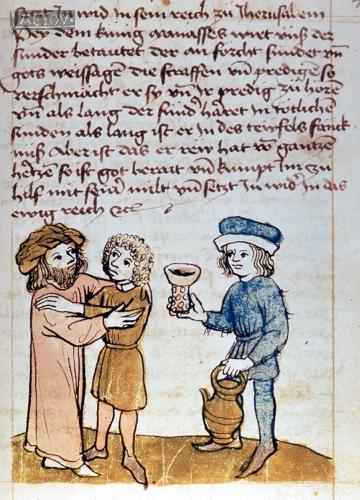 wid in sein reich zu Jherusalem
Pey dem kung manasses wirt vnß der
sunder betautet der an forcht sundet vn̄
gots weissagen die straffen vn̄ predigen so
verschmächt er sy vn̄ Ir predig zu hören
vn̄ als lang der sund' häret in tötlichen
sunden als lang ist er In des tewfels fanck
nüß Aber ist das er rew hat vō gantzē
hetze so ist got berait vn̄ kumpt Im zu
hilf mit seiner milt vn̄ setzt In wid' In das
ewig reich etc